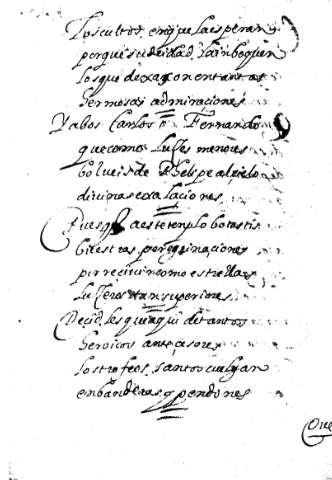 los cultos en que la esperan
porque su deidad la inboquen
los que dexaron en tantas
hermosas admiraciones
Y a bos Carlos o Fernando
que como luzes menores
bolueis de Phelipe al cielo
diuinas exalaciones
Pues q a este templo botastis
buestras peregrinaciones
por reciuir como estrellas
luzeros tan superiores
Decid les que aqui de tantos
heroicos antecesores
los trofeos santos cuelgan
en banderas y pendones
Que